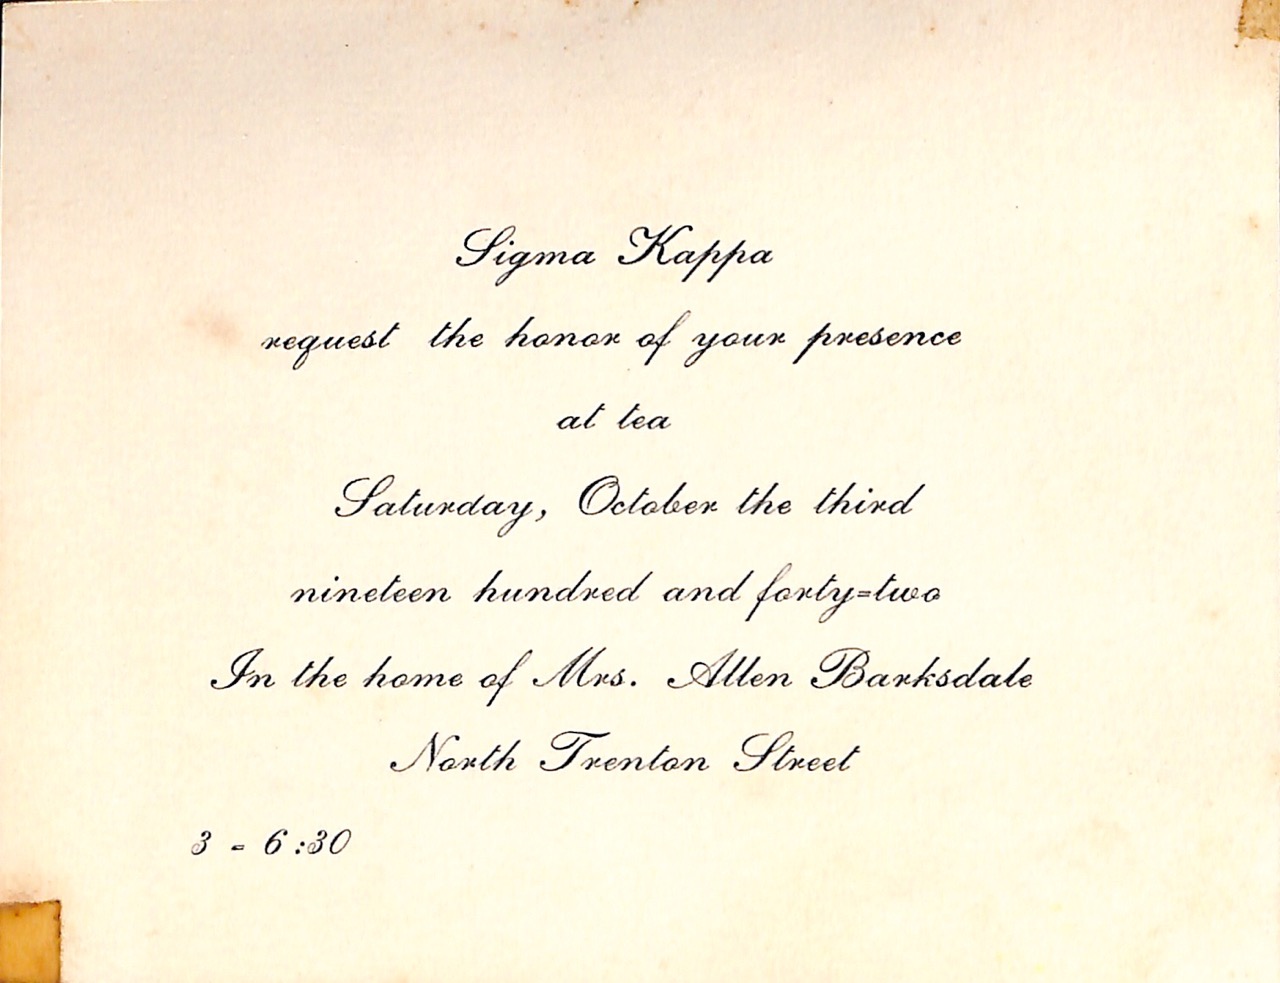 Sigma Kappa
request the honor of your presence
at tea
Saturday, October the third
nineteen hundred and forty=two
In the home of Mrs. Allen Barksdale
North Trenton Street
3 - 6:30